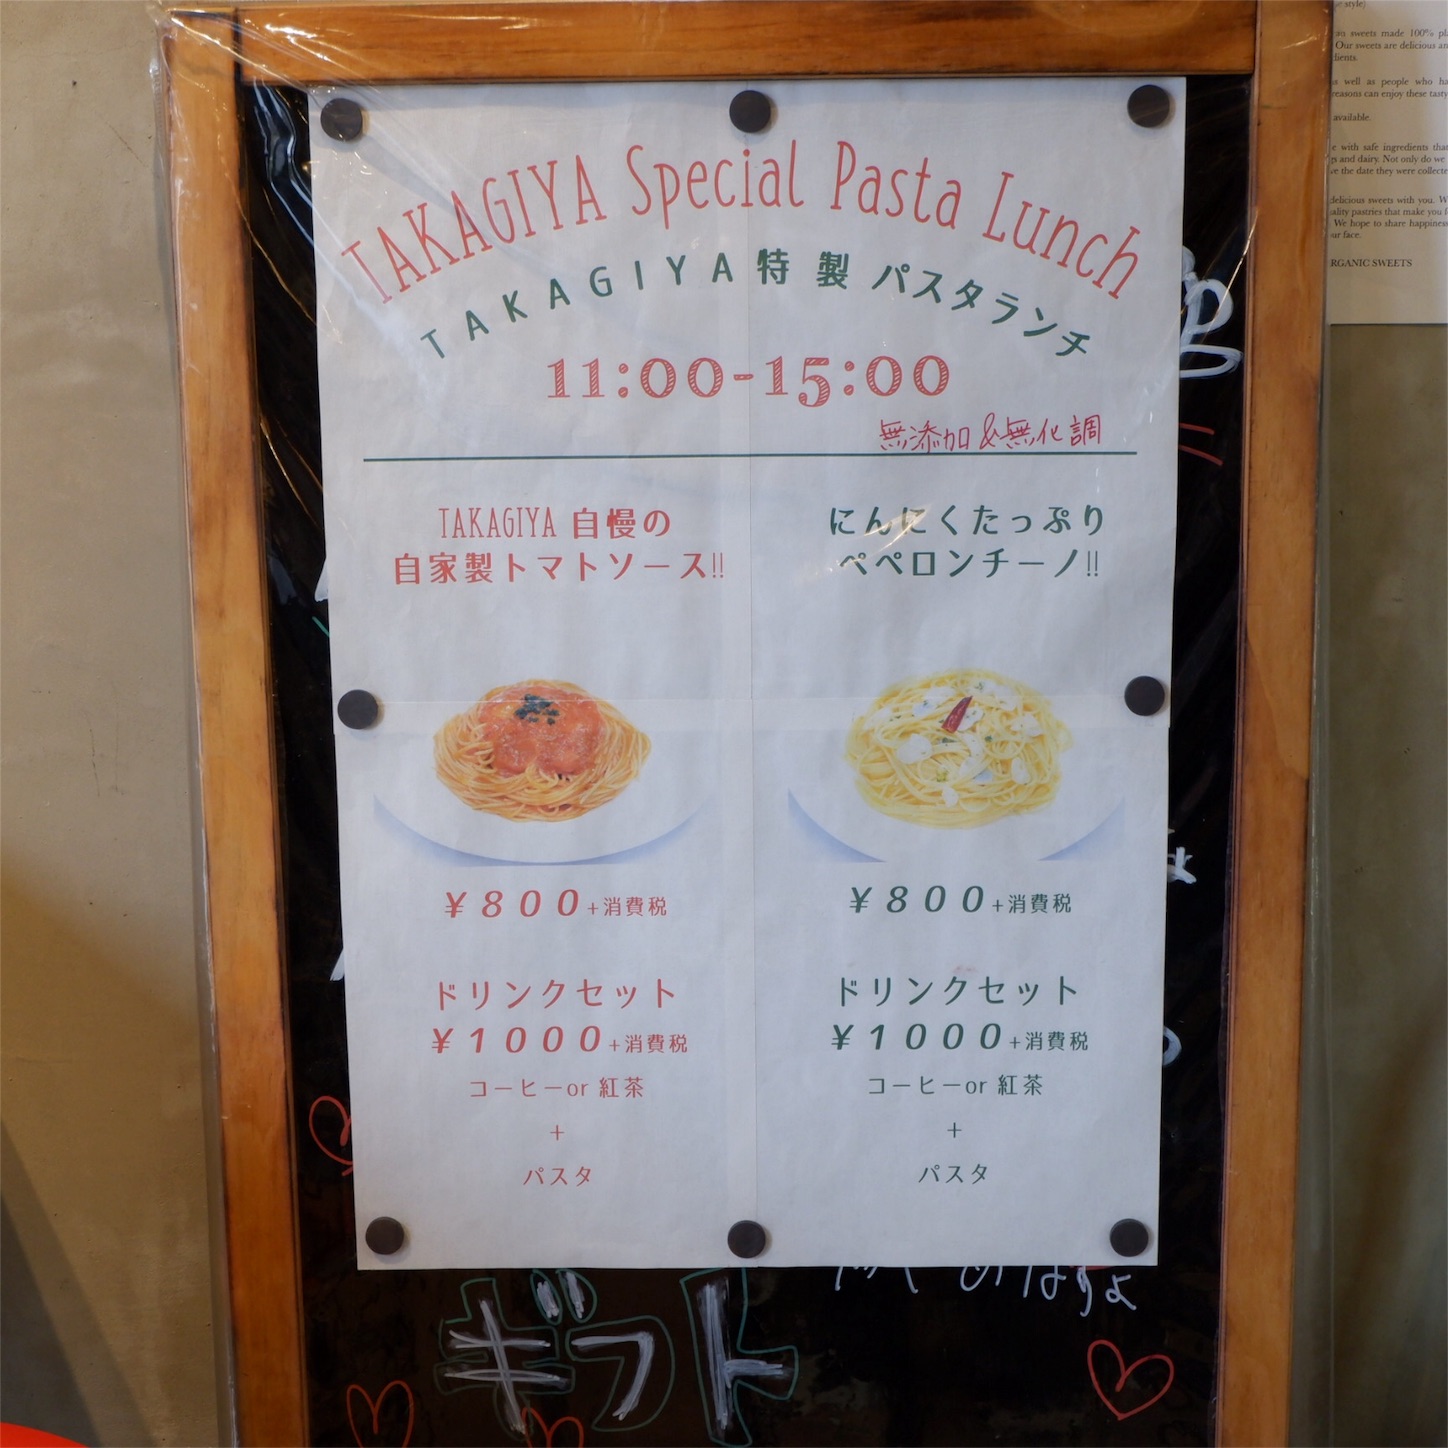 TAKAGIYA Special Pasta Lunch
TAKAGIYA特製パスタランチ
11:00-15:00
無添加&無化調
TAKAGIYA 自慢の
自家製トマトソース!!
¥800+消費税
ドリンクセット
¥1000+消費税
コーヒーor 紅茶
+
パスタ
にんにくたっぷり
ペペロンチーノ!!
¥800+消費税
ドリンクセット
¥1000+消費税
コーヒーor 紅茶
+
パスタ
ギフト
style)
sweets made 100%
Our sweets are delicious
well as people who
reasons can enjoy these tasty
available.
with safe ingredients that
and dairy. Not only do we
the date they were collected
delicious sweets with you.
pastries that make you
We hope to share happiness
face.
SWEETS